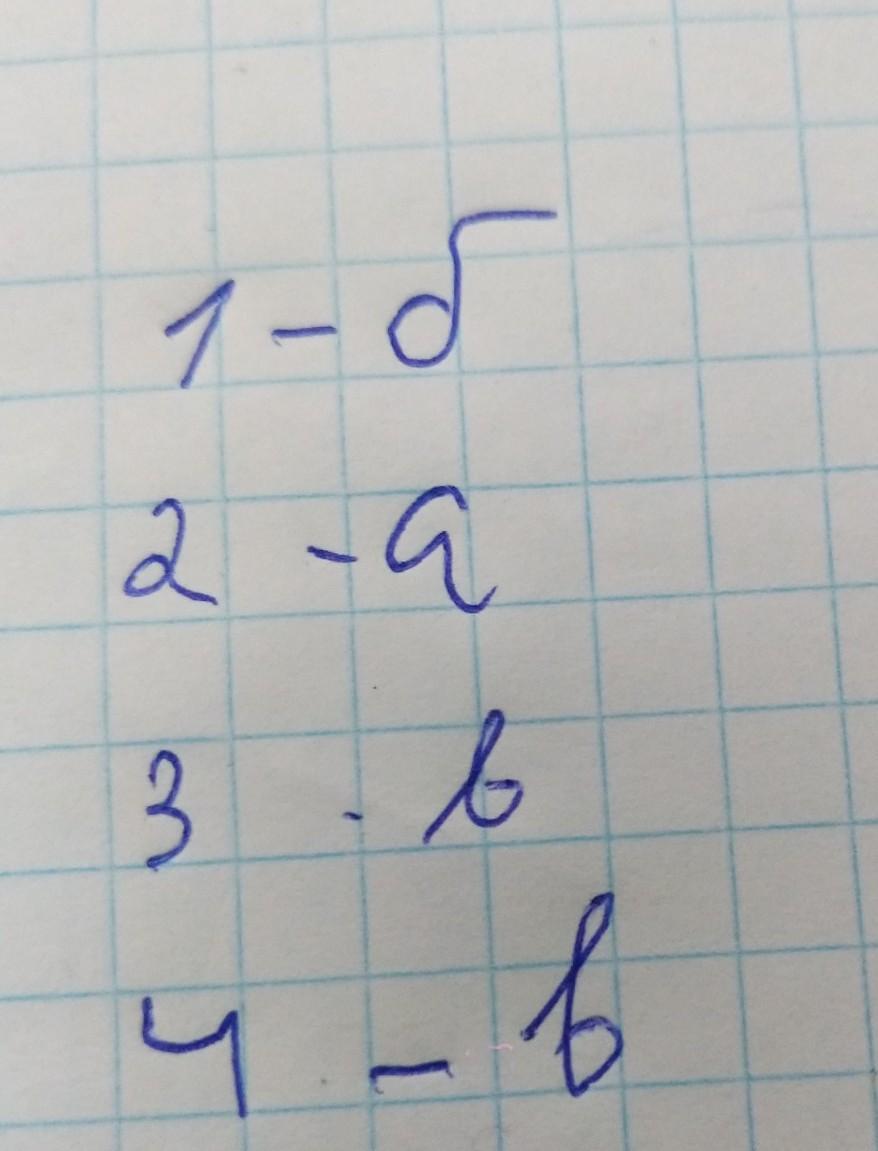 1 - б
2 - а
3 - в
4 - в